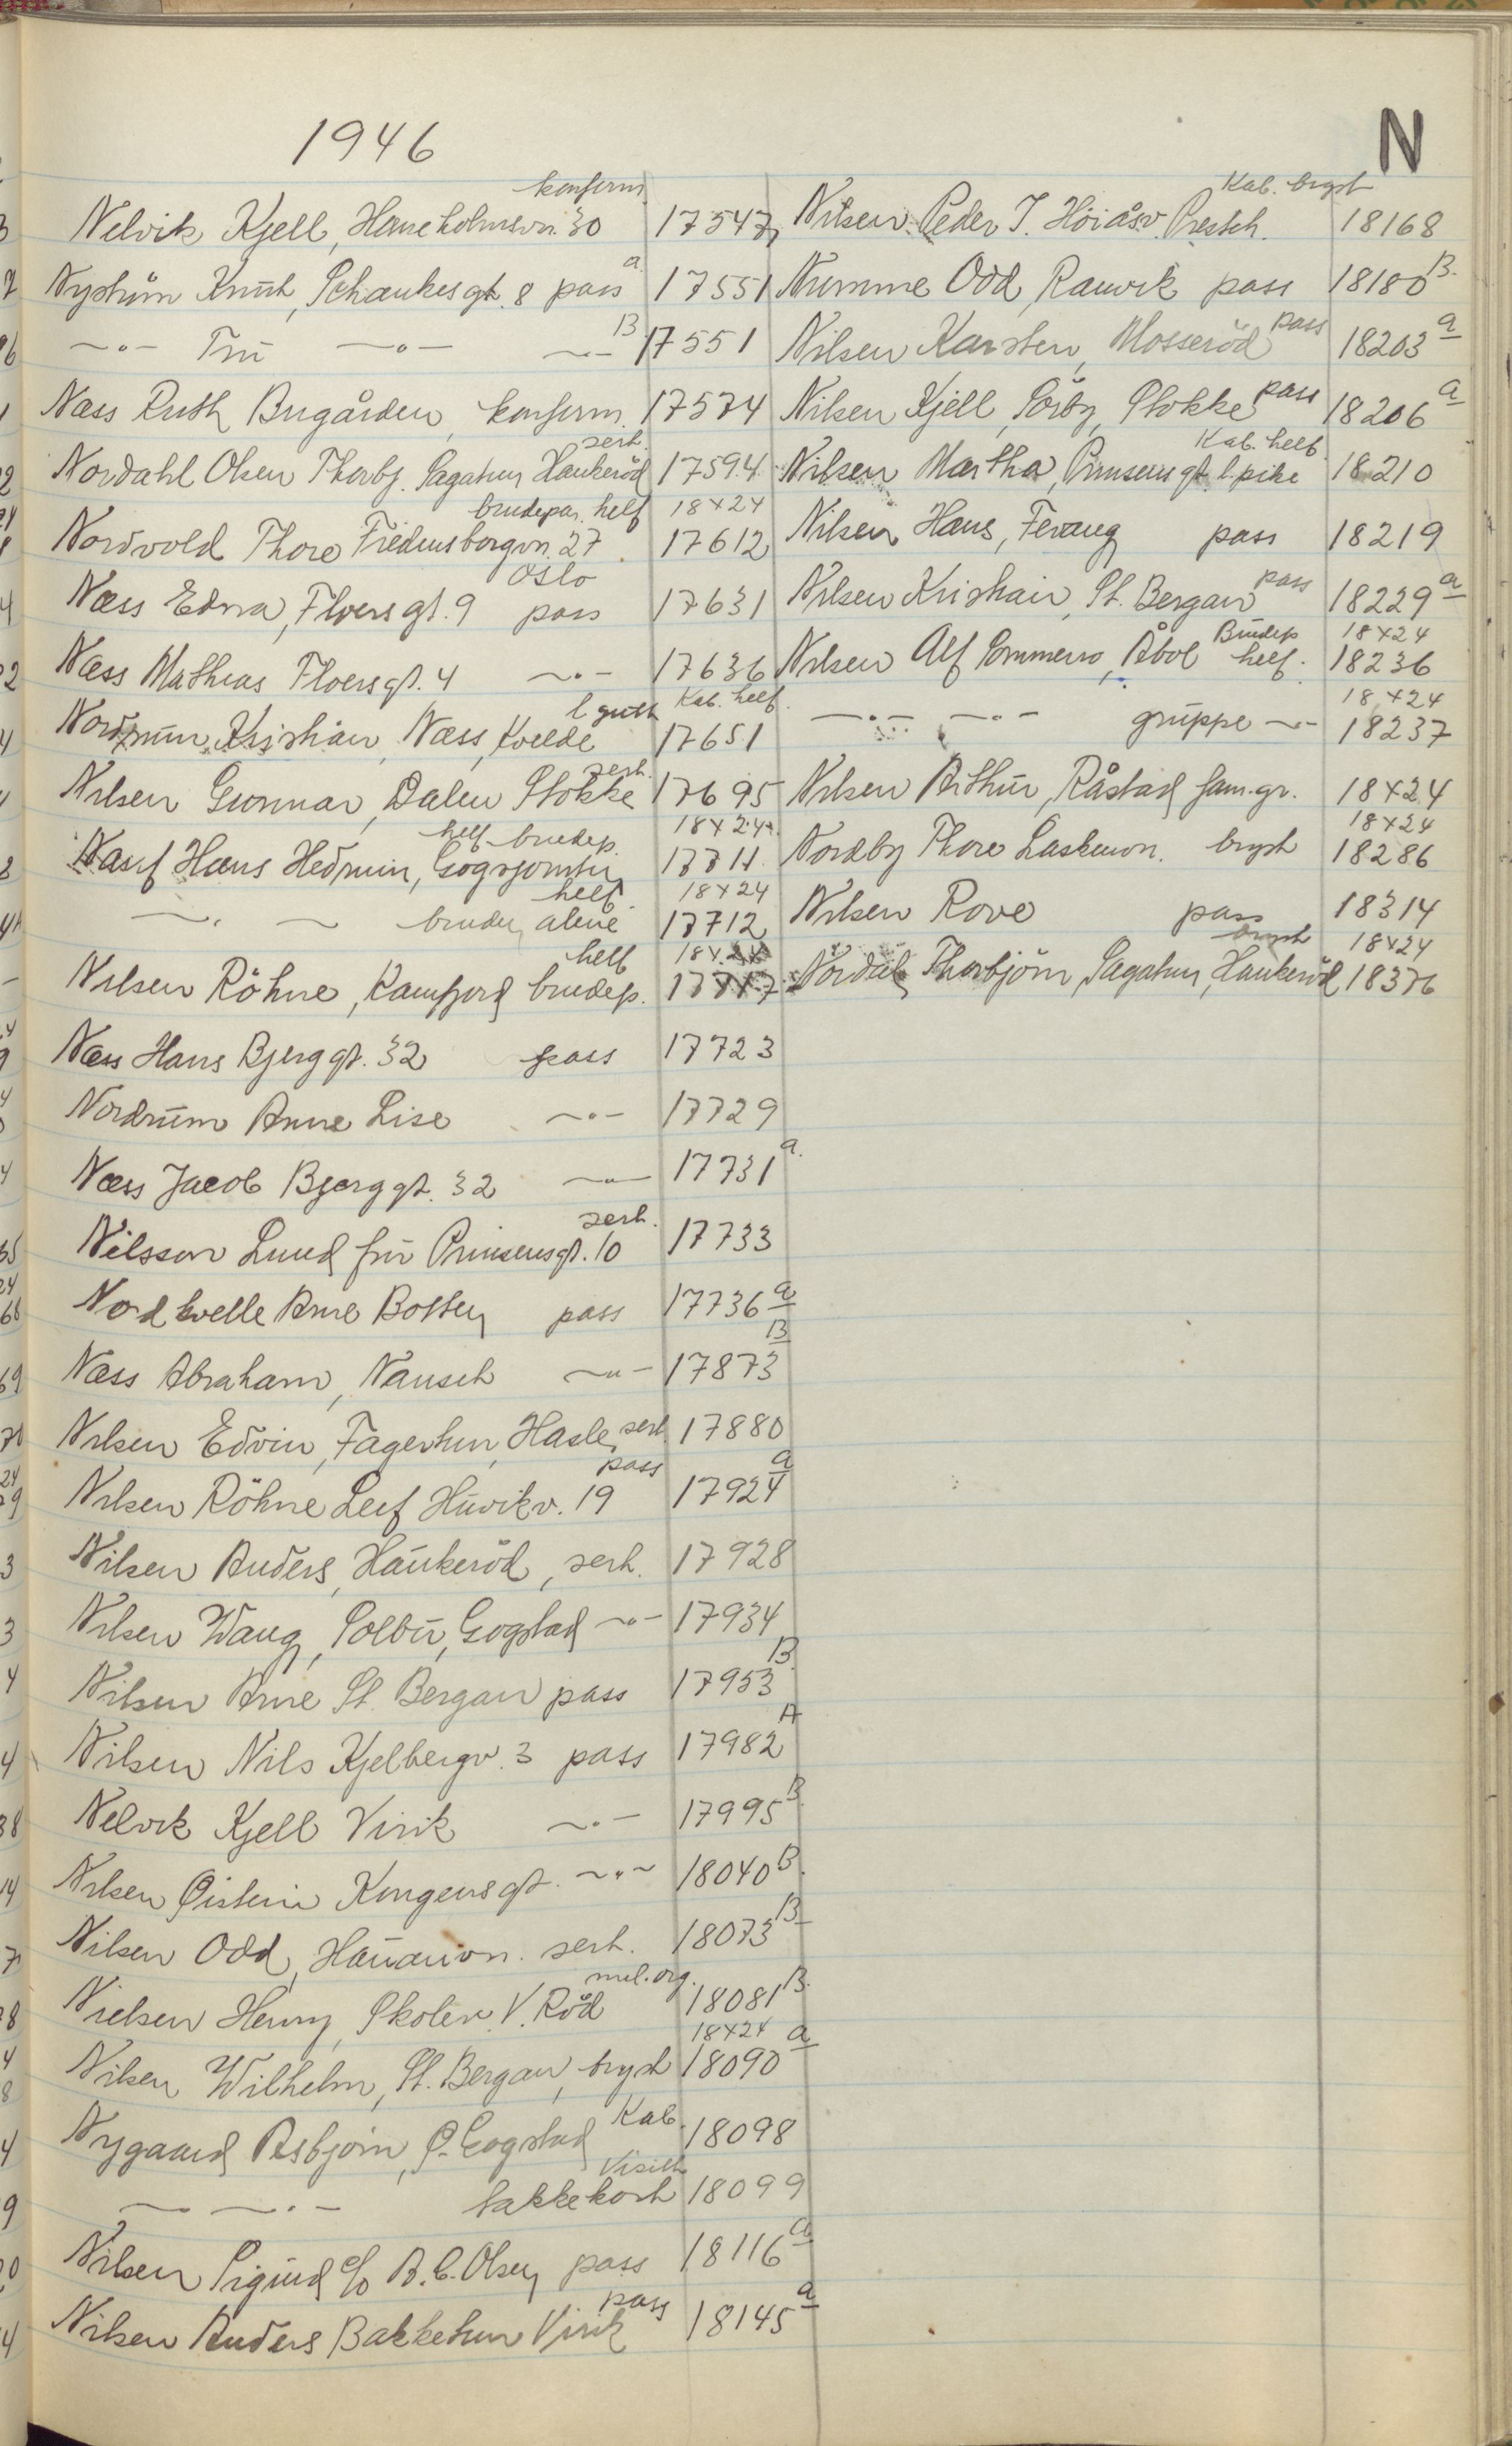 1946
N
konferm.
Nelvik Kjell, Haneholmsvn. 30 17547
Nyström Knut, Schankesgt. 8 pass 17551 a.
—"— Fru —"— —"— 17551 B
Næss Ruth Brygården, konferm. 17574
Nordahl Olsen Thorbj. Sagatun Haukeröd serh. 17594
brudepar. helf 18x24
Nordvold Thore Fredensborgvn. 27 Oslo 17612
Næss Edna, Floersgt. 9 pass 17631
Næss Mathias Floersgt. 4 —"— 17636
l. gutt Kab. helf.
Nordrum Kristian, Næss, Kvelde 17651
Nilsen Gunnar, Dalen Stokke serh. 17695
helf brudep. 18x24
Hans Hedmin, 17711
helf. 18x24
—"— — bruden alene 17712
helf 18x24
Nilsen Röhne, Kamfjord brudep. 17717
Næss Hans Bjerggt. 32 pass 17723
Nordrum Anne Lise —"— 17729
Næss Jacob Bjerggt. 32 —"— 17731 a.
Nilsson Lund fru Prinsensgt. 10 serh. 17733
Nordkvelle Arne Botten pass 17736 a
Næss Abraham, Nauseh —"— 17873 B
Nilsen Edvin, Fagertun, Hasle, serh. 17880
pass
Nilsen Röhne Leif Huvikv. 19 17924 a
Nilsen Anders, Haukeröd, serh. 17928
Nilsen Waug, Solbu, Gogstad —"— 17934
Nilsen Arne St. Bergan pass 17953 B.
Nilsen Nils Kjelbergv. 3 pass 17982 A
Nelvik Kjell Virik —"— 17995 B.
Nilsen Øistein Kongensgt. —"— 18040 B.
Nilsen Odd, Hauanvn. serh. 18073 B
mil. org.
Nielsen Henry, Skolev. V. Röd 18081 B.
18x24
Nilsen Wilhelm, St. Bergan, bryst 18090 a
Nygaard Asbjørn, Ø. Gogstad Kab. 18098
Visitk.
—"— —"— takkekort 18099
Nilsen Sigurd c/o A. C. Olsen pass 18116 a
pass
Nilsen Anders Bakketun Virik 18145 a
Kab. bryst
Nilsen Peder J. Höiåsv. Presteh. 18168
Numme Odd, Ranvik pass 18180 B.
Nilsen Karsten, Mosseröd pass 18203 a
Nilsen Kjell, Sörby, Stokke pass 18206 a
Kab. helf.
Nilsen Martha, Prinsensgt. l. pike 18210
Nilsen Hans, Fevang pass 18219
Nilsen Kristian, St. Bergan pass 18229 a
Brudep 18x24
Nilsen Alf Åbol helf. 18236
18x24
—"— —"— gruppe —"— 18237
Nilsen Arthur, Råstad fam. gr. 18x24
18x24
Nordby Thore Laskenvn. bryst 18286
Nilsen Rove pass 18314
bryst 18x24
Nordahl Thorbjörn, Sagatun, Haukeröd 18376